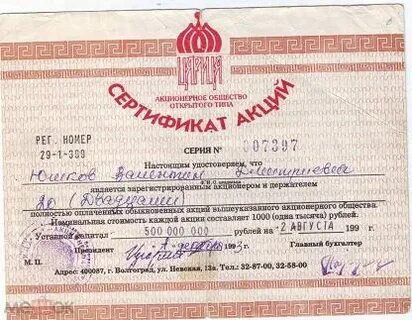 ЦАРИЦА
АКЦИОНЕРНОЕ ОБЩЕСТВО
ОТКРЫТОГО ТИПА
СЕРТИФИКАТ АКЦИЙ
РЕГ. НОМЕР
29-1-389
СЕРИЯ № 007397
Настоящим удостоверяем, что
Юшков Валентин Дмитриевич
Ф.И.О. акционера
является зарегистрированным акционером и держателем
20 (Двадцати)
полностью оплаченных обыкновенных акций вышеуказанного акционерного общества
Номинальная стоимость каждой акции составляет 1000 (одна тысяча) рублей.
Уставной капитал 500 000 000 рублей на "2 АВГУСТА 199
Президент 199 3 Главный бухгалтер
М.П.
Адрес: 400087, г. Волгоград, ул. Невская, 13а. Тел.: 32-87-00, 32-58-00